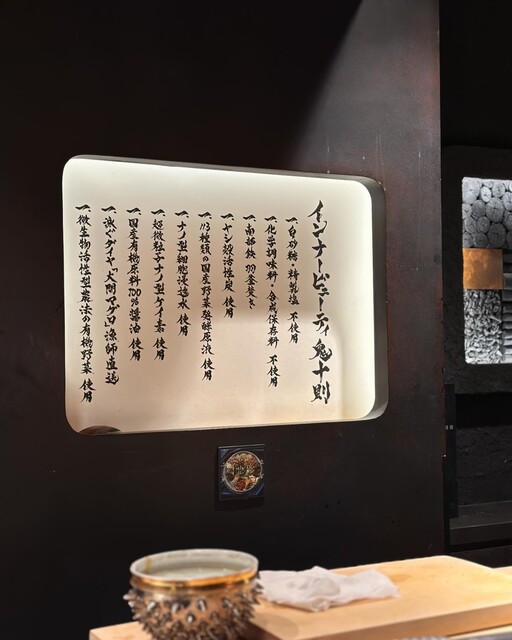 インナービューティ 鬼十則
一、白砂糖・精製塩 不使用
一、化学調味料・合成保存料 不使用
一、南部鉄 羽釜焚き
一、ヤシ殻活性炭 使用
一、113種類の国産野菜発酵原液 使用
一、ナノ型細胞浸透水 使用
一、超微粒子ナノ型ケイ素 使用
一、国産有機原料100%醤油 使用
一、漁ぐダイヤ「大間マグロ」漁師直送
一、微生物活性型農法の有機野菜 使用